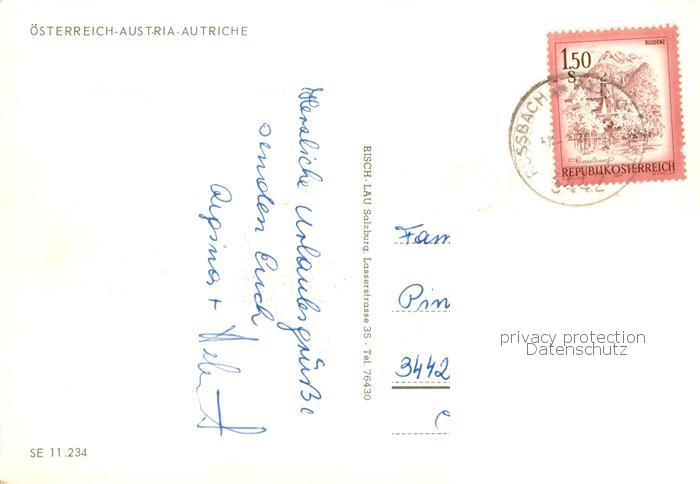 ÖSTERREICH-AUSTRIA-AUTRICHE
BLUDENZ
1.50
S
REPUBLIK ÖSTERREICH
Herzliche Urlaubsgrüße
senden Euch
+
RISCH-LAU Salzburg, Lasserstrasse 35 · Tel. 76430
Fam
Pin
3442
privacy protection
Datenschutz
SE 11.234